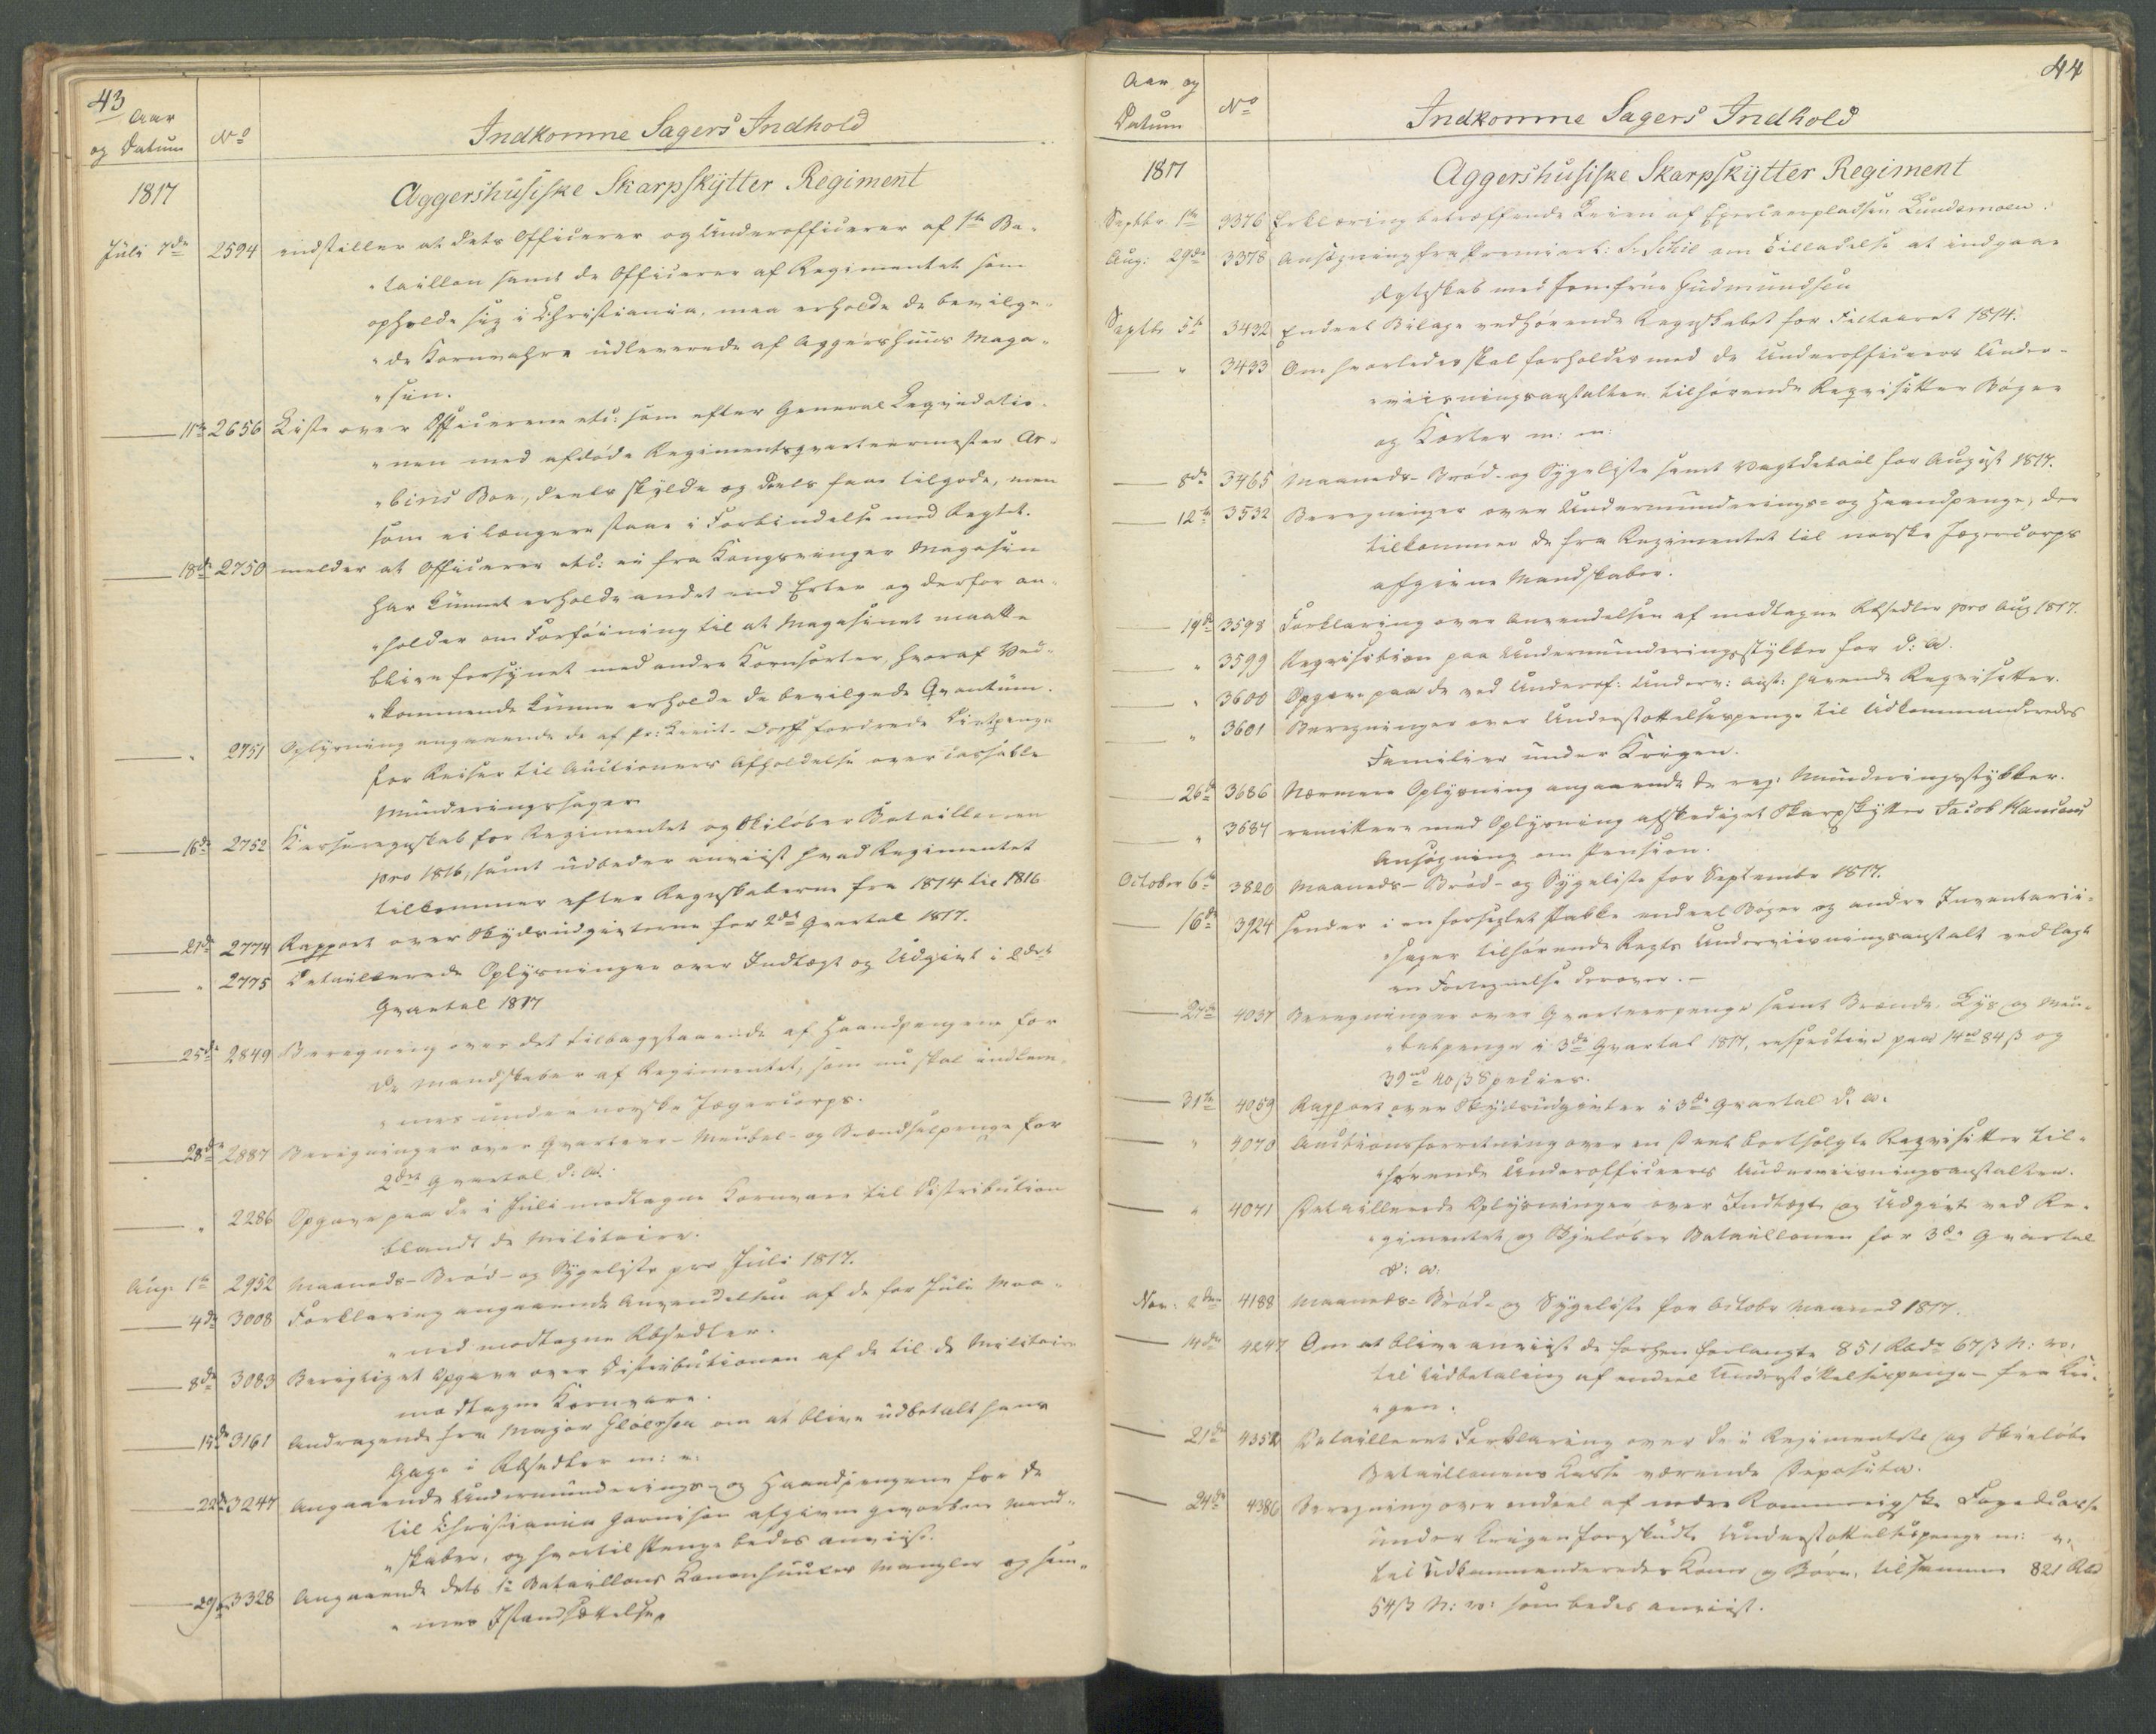 43
Aar
og Datum
No
Indkomne Sagers Indhold
1817
Aggershusiske Skarpskytter Regiment
Juli 7de 2594 indstiller at dets Officerer og Underofficerer af 1ste Ba-
"taillon samt de Officerer af Regimentet som
opholde sig i Christiania, maa erholde de bevilge-
"de Kornvahre udleverede af Aggershuus Maga-
"sin.
11te 2656 Liste over Officererne etc: som efter General Liqvidatio-
"nen med afdøde Regimentsqvarteermester Ar-
"bins Boe, deels skylde og deels faae tilgode, men
som ei længere staae i Forbindelse med Regtet.
18de 2750 melder at Officerer etc: ei fra Kongsvinger Magasin
har kunnet erholde andet end Erter og derfor an-
"holder om Forføining til at Magasinet maatte
blive forsynet med andre Kornsorter, hvoraf Ved-
"kommende kunne erholde de bevilgede Qvantum.
" 2751 Oplysning angaaende de af Pr: Lieut. Dorff fordrede Diætpenge
for Reiser til Auctioners Afholdelse over cassable
Munderingssager
16de 2752 Kasseregnskab for Regimentet og Skiløber Bataillonen
pro 1816, samt udbeder anviist hvad Regimentet
tilkommer efter Regnskaberne fra 1814 til 1816
21de 2774 Rapport over Skydsudgivterne for 2det Qvartal 1817.
" 2775 Detaillerede Oplysninger over Indtægt og Udgivt i 2det
Qvartal 1817
25de 2849 Beregning over det tilbagestaaende af Haandpengene for
de Mandskaber af Regimentet, som nu skal indlem-
"mes under norske Jægercorps.
28de 2887 Beregninger over Qvarteer- Meubel- og Brændselpenge for
2det Qvartal d: A:
" 2286 Opgave paa de i Juli modtagne Kornvare til Distribution
blandt de Militaire.
Aug. 1te 2952 Maaneds- Brød- og Sygeliste pro Juli 1817.
4de 3008 Forklaring angaaende Anvendelsen af de for Juli Maa-
"ned modtagne Rbsedler.
8de 3083 Berigtiget Opgave over Distributionen af de til de Militaire
modtagne Kornvare.
15de 3161 Andragende fra Major Gløersen om at blive udbetalt hans
Gage i Rbsedler m: v:
22de 3247 Angaaende Undermunderings- og Haandpengene for de
til Christiania Garnison afgivne gevorbne Mand-
"skaber, og hvortil Penge bedes anviist.
29de 3328 Angaaende dets 1te Bataillons Kanonhuuses Mangler og sam-
"mes Istandsættelse.
44
Aar og
Datum
No
Indkomne Sagers Indhold
1817
Aggershusiske Skarpskytter Regiment
Septbr. 1te 3376 Erklæring betræffende Leien af Exerceerpladsen Lundemoen.
Aug: 29de 3378 Ansøgning fra Premierl: S. Schie om Tilladelse at indgaae
Ægteskab med Jomfrue Gudmundsen
Septbr. 5te 3432 Endeel Bilage vedhørende Regnskabet for Feltaaret 1814.
" 3433 Om hvorledes skal forholdes med de Underofficeers Under-
"viisningsanstalten tilhørende Reqvisitter Bøger
og Karter m: m:
8de 3465 Maaneds- Brød- og Sygeliste samt Vagtdetail for August 1817.
12te 3532 Beregninger over Undermunderings- og Haandpenge, der
tilkommer de fra Regimentet til norske Jægercorps
afgivne Mandskaber.
19de 3598 Forklaring over Anvendelsen af modtagne Rbsedler pro Aug 1817.
" 3599 Reqvisition paa Undermunderingsstykker for d: A.
" 3600 Opgave paa de ved Underof: Underv: Anst: havende Reqvisitter.
" 3601 Beregninger over Understøttelsespenge til Udkommanderedes
Familier under Krigen.
26de 3686 Nærmere Oplysning angaaende de reg: Munderingsstykker.
" 3687 remitterer med Oplysning afskediget Skarpskytter Jacob Hansens
Ansøgning om Pension.
October 6te 3820 Maaneds- Brød- og Sygeliste for Septembr 1817.
16de 3924 sender i en forseglet Pakke endeel Bøger og andre Inventarii-
"sager tilhørende Regts Underviisningsanstalt vedlagt
en Fortegnelse derover.
27de 4037 Beregninger over Qvarteerpenge samt Brænde, Lys og Meu-
"belpenge i 3de Qvartal 1817, respective paa 14 84 ß og
39 40 ß Species.
31te 4059 Rapport over Skydsudgivter i 3de Qvartal d. A.
" 4070 Auctionsforretning over en Deel bortsolgte Reqvisitter til-
"hørende Underofficeers Underviisningsanstalten.
" 4071 Detaillerede Oplysninger over Indtægt og Udgivt ved Re-
"gimentet og Skieløber Bataillonen for 3de Qvartal
d: A:
Nov: 2den 4188 Maaneds- Brød- og Sygeliste for Octobr Maaned 1817.
14de 4247 Om at blive anviist de forhen forlangte 851 Rbd 67 ß N: V:
til Udbetaling af endeel Understøttelsespenge fra Kri-
"gen.
21de 4352 Detailleret Forklaring over de i Regimentets og Skieløbr
Bataillonens Kasse værende Deposita.
24de 4386 Beregning over endeel af nedre Rommerigske Fogedcasse
under Krigen forskudte Understøttelsespenge m: v.
til Udkommanderedes Koner og Børn, tilsammen 821 Rbd
54 ß N: V: som bedes anviist.